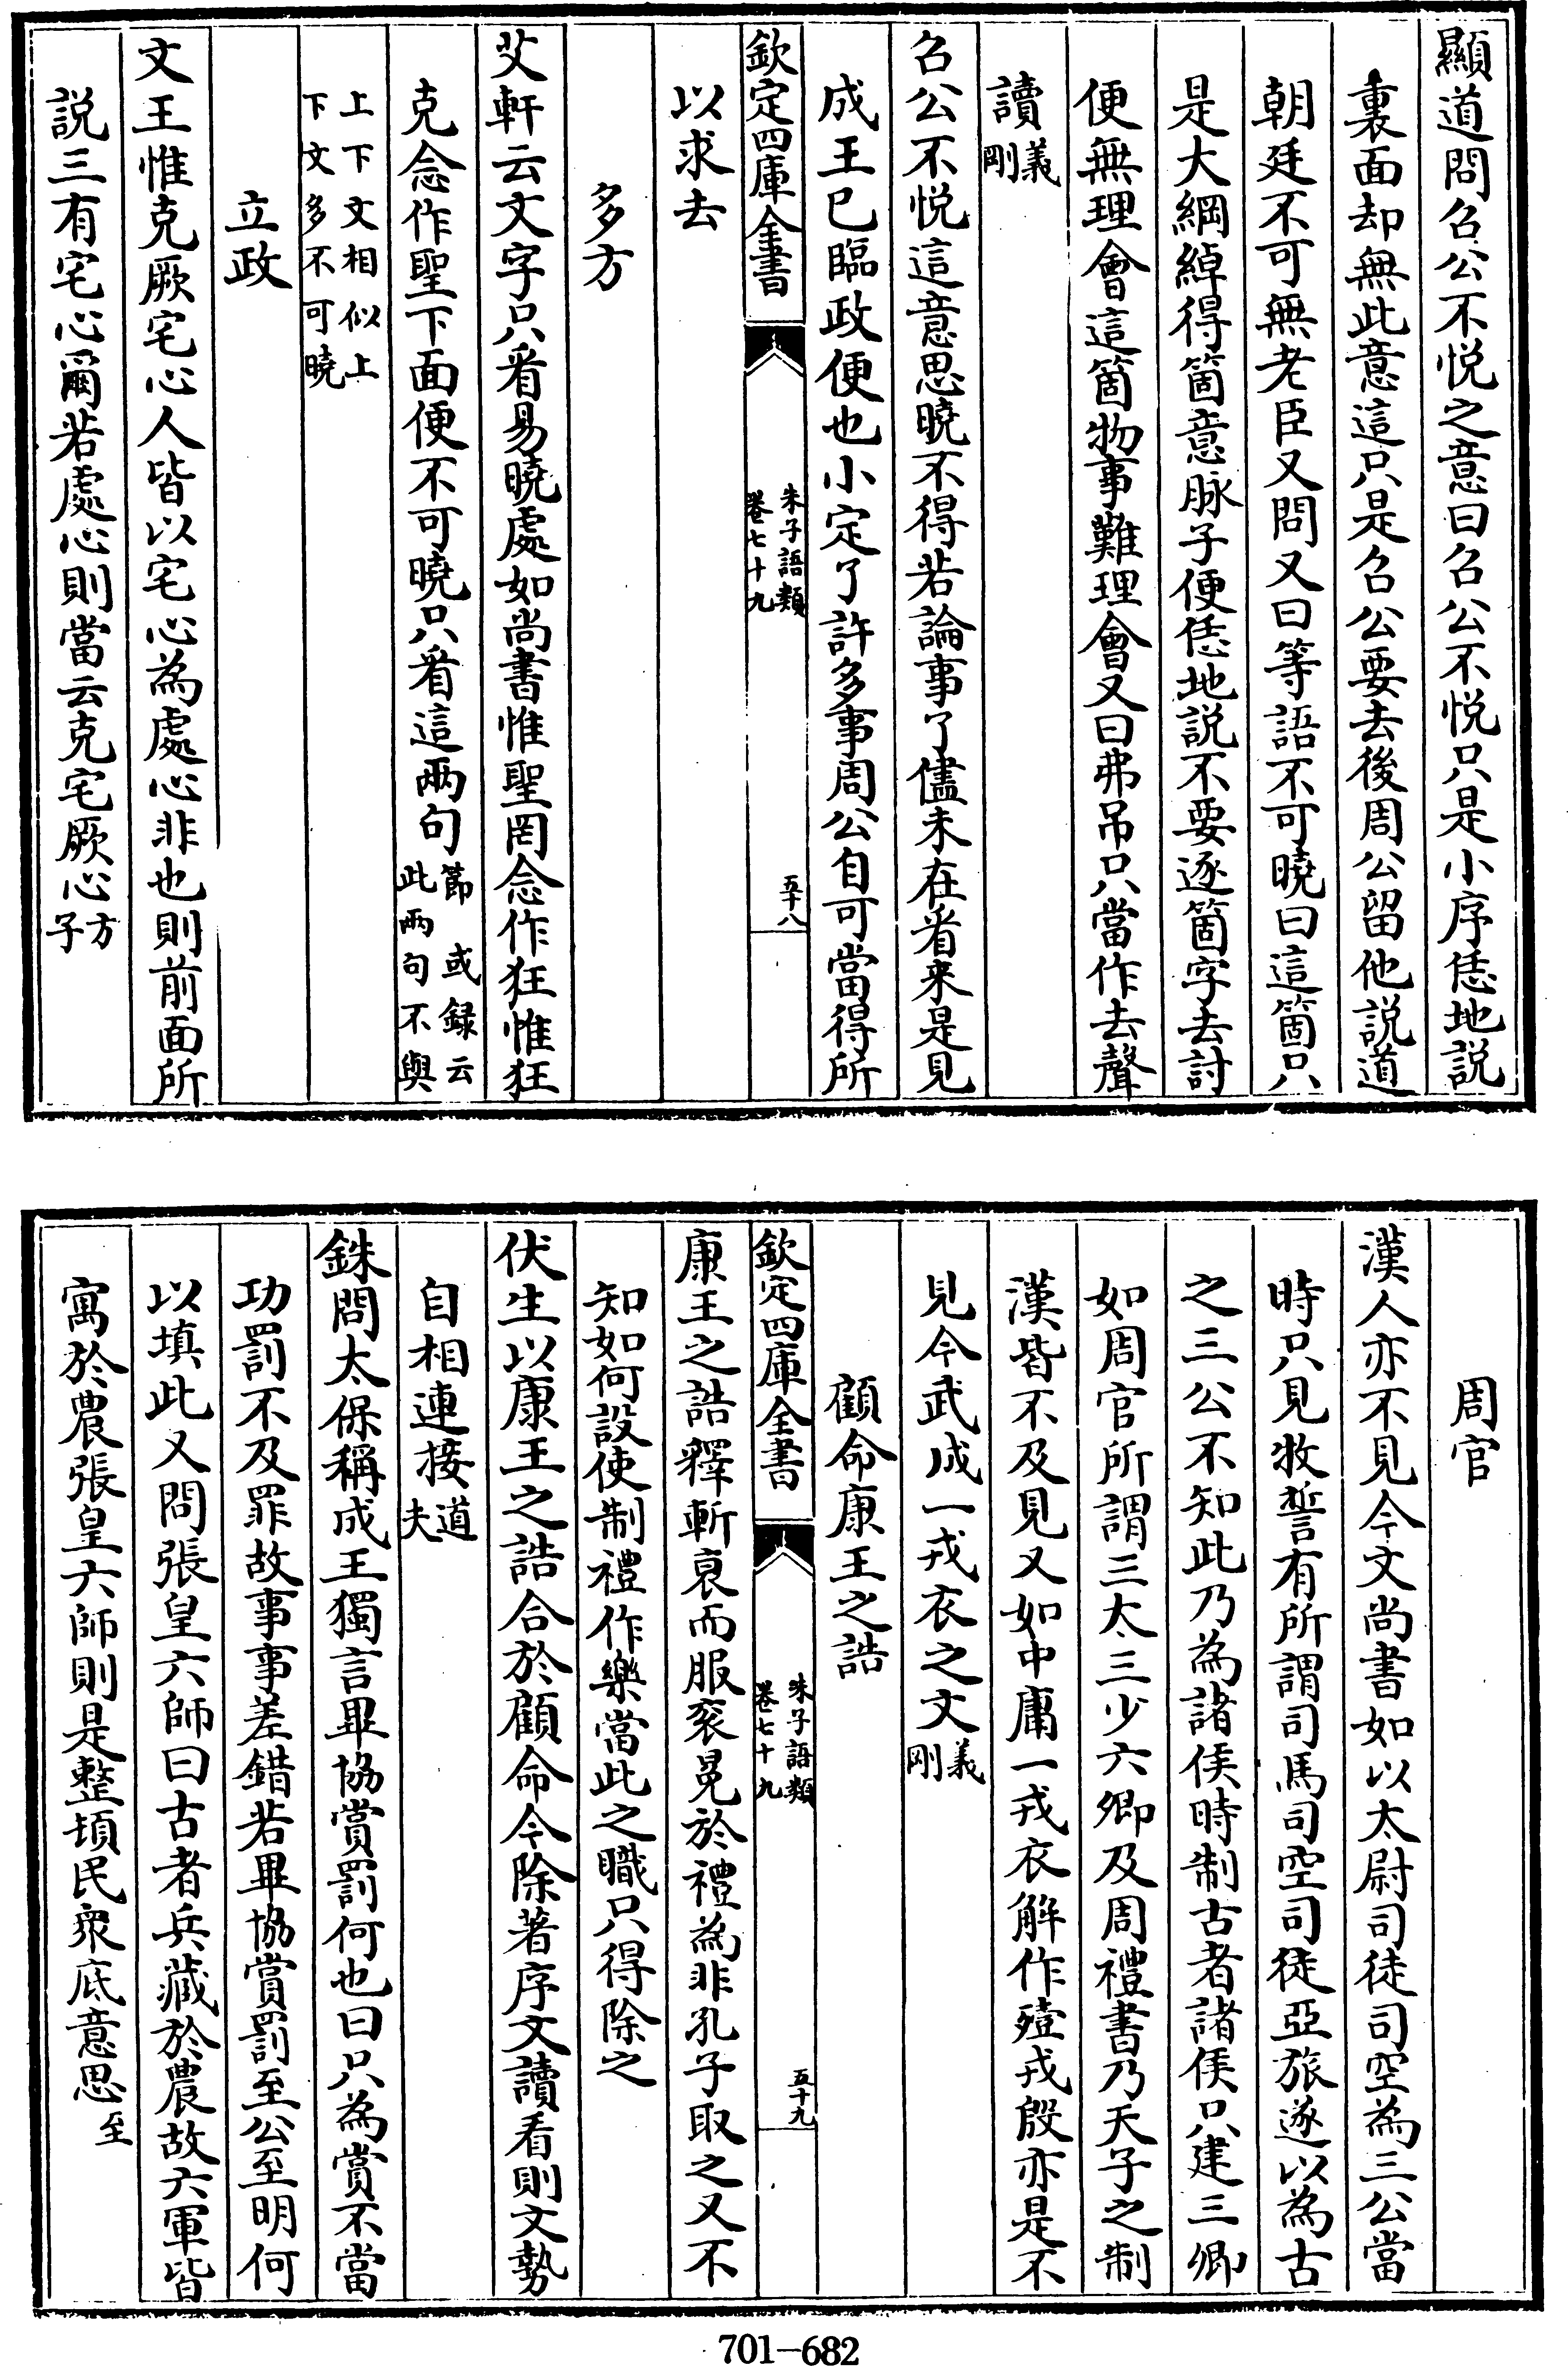 顯道問召公不悦之意曰召公不悦只是小序恁地説
裏面却無此意這只是召公要去後周公留他説道
朝廷不可無老臣又問又曰等語不可曉曰這箇只
是大綱綽得箇意脉子便恁地説不要逐箇字去討
便無理會這箇物事難理會又曰弗吊只當作去聲
讀義剛
召公不悦這意思曉不得若論事了儘未在看来是見
成王已臨政便也小定了許多事周公自可當得所
欽定四庫全書
朱子語類
卷七十九
五十八
以求去
多方
艾軒云文字只看易曉處如尚書惟聖罔念作狂惟狂
克念作聖下面便不可曉只看這兩句節 或録云
此兩句不與
上下文相似上
下文多不可曉
立政
文王惟克厥宅心人皆以宅心為處心非也則前面所
説三有宅心爾若處心則當云克宅厥心方子
周官
漢人亦不見今文尚書如以太尉司徒司空為三公當
時只見牧誓有所謂司馬司空司徒亞旅遂以為古
之三公不知此乃為諸侯時制古者諸侯只建三卿
如周官所謂三太三少六卿及周禮書乃天子之制
漢皆不及見又如中庸一戎衣解作殪戎殷亦是不
見今武成一戎衣之文義剛
顧命康王之誥
欽定四庫全書
朱子語類
卷七十九
五十九
康王之誥釋斬衰而服衮冕於禮為非孔子取之又不
知如何設使制禮作樂當此之職只得除之
伏生以康王之誥合於顧命今除著序文讀看則文勢
自相連接道夫
銖問太保稱成王獨言畢協賞罰何也曰只為賞不當
功罰不及罪故事事差錯若畢協賞罰至公至明何
以填此又問張皇六師曰古者兵藏於農故六軍皆
寓於農張皇六師則是整頓民衆底意思至
701-682